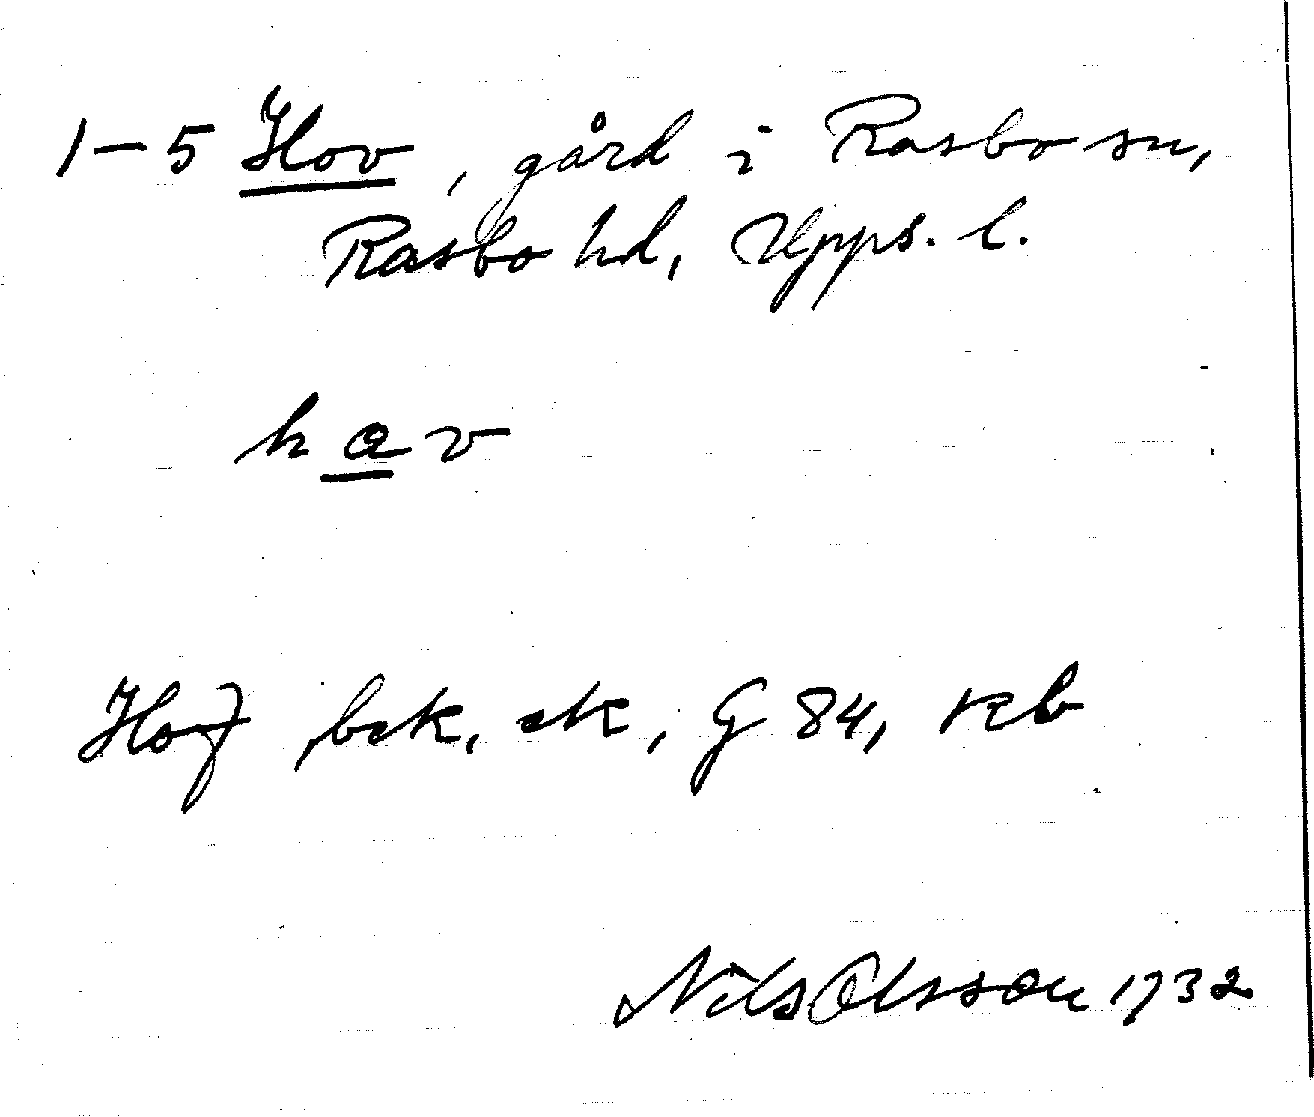 1–5 Hov, gård i Rasbo sn,
Rasbo hd, Upps. l.
hav
Hof bek, ek, G 84, reb
Nils Olsson 1932